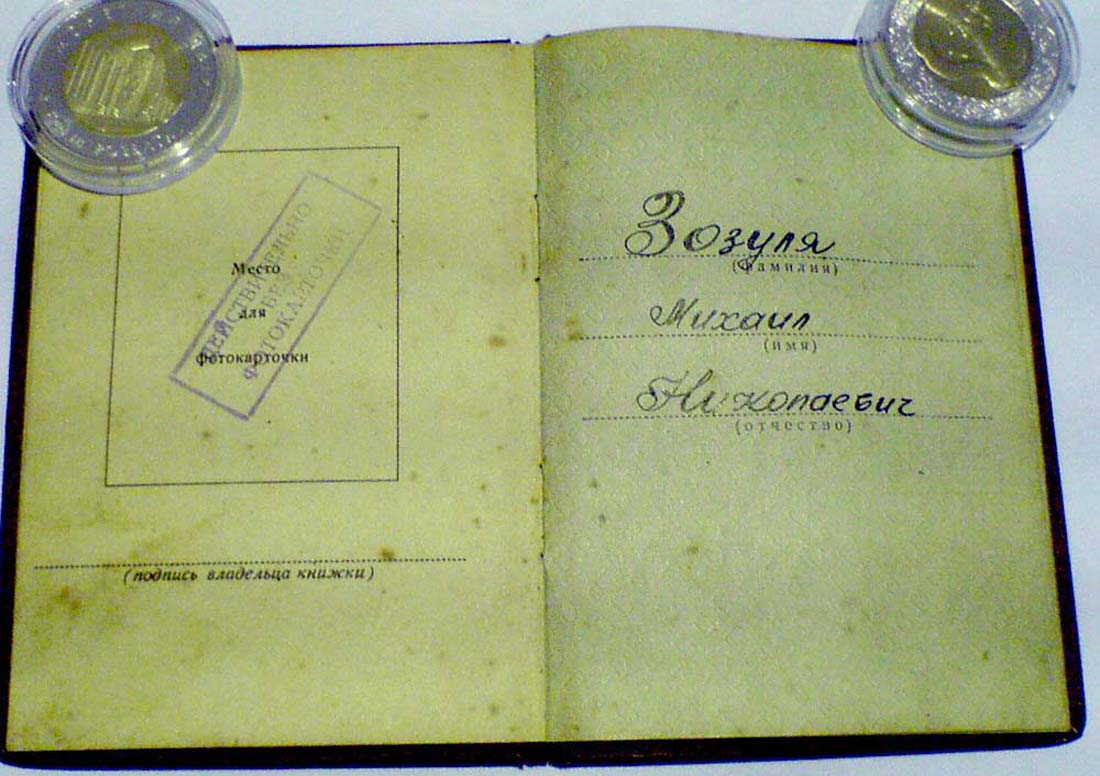 Место
для
фотокарточки
ДЕЙСТВИТЕЛЬНО
БЕЗ
ФОТОКАРТОЧКИ
(подпись владельца книжки)
Зозуля
(фамилия)
Михаил
(имя)
Николаевич
(отчество)